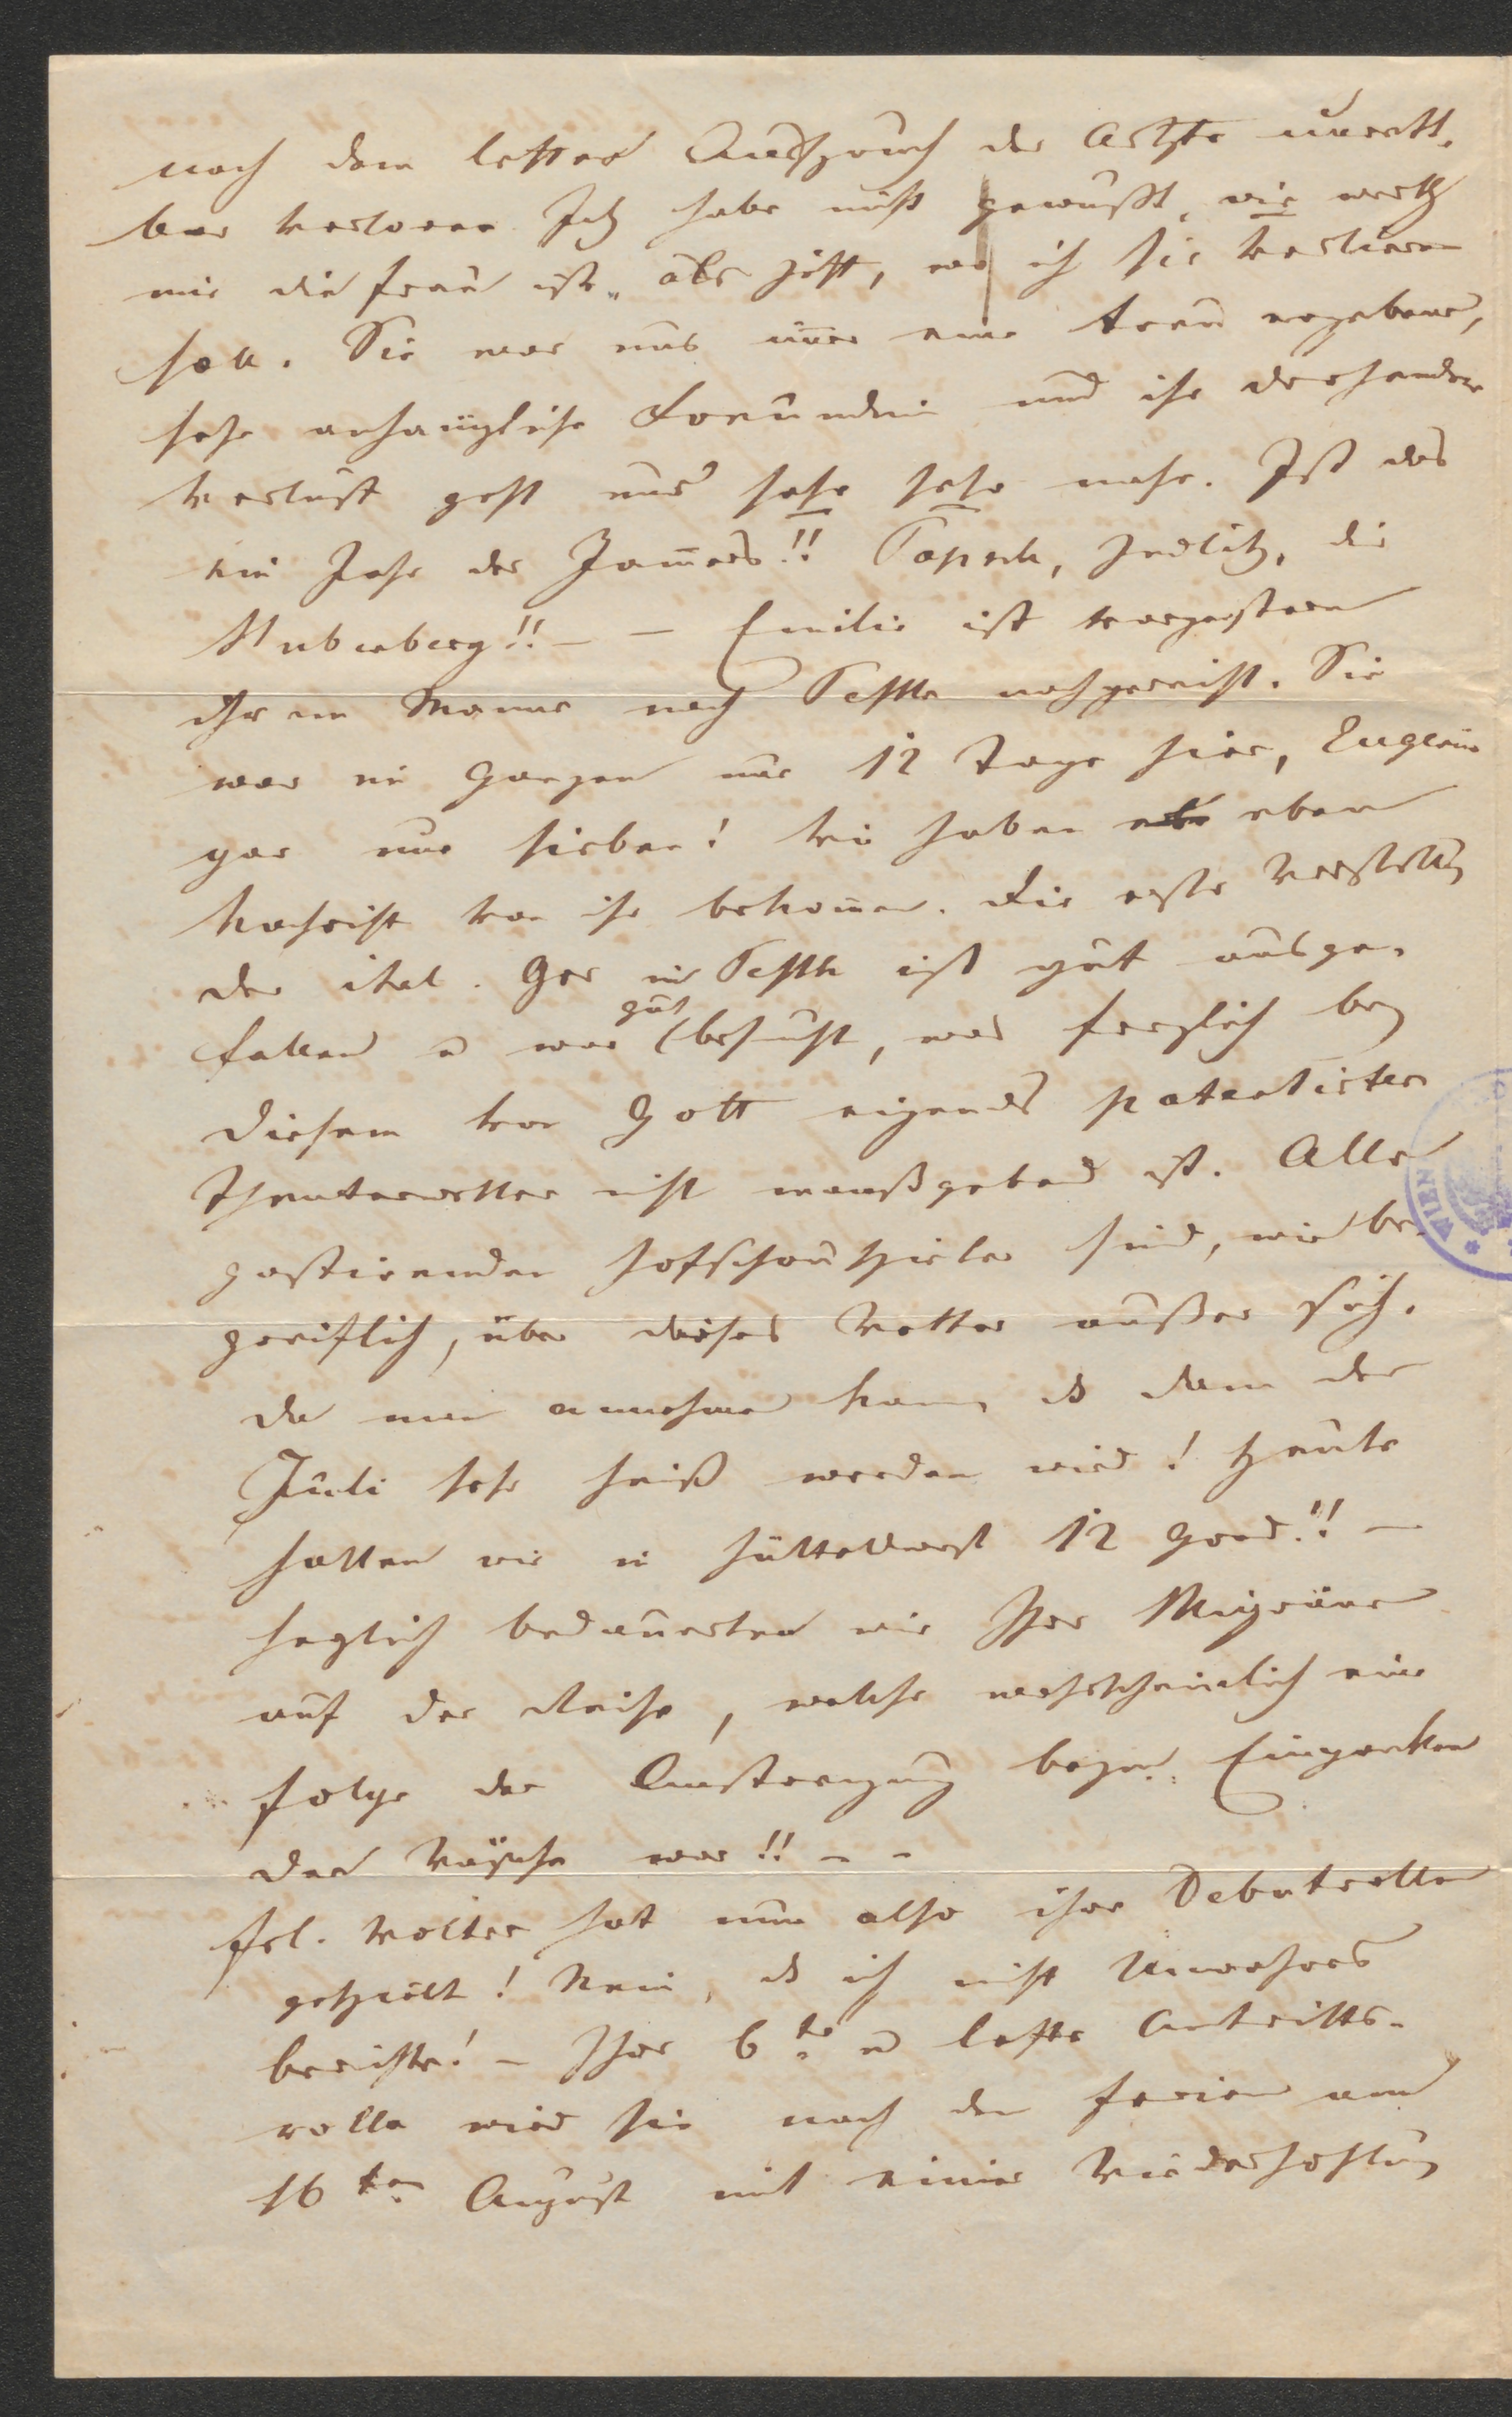 nach dem letzten Ausspruch der Ärzte unrett-
bar verloren. Ich habe nicht gewußt, wie werth
mir die Frau ist, als jetzt, wo ich sie verlieren
soll. Sie war uns im̅er eine treu ergebene,
sehr anhängliche Freundin und ihr drohender
Verlust geht uns sehr sehr nahe. Ist das
ein Jahr des Jam̅ers!! Zedlitz, die
Stubenberg!! – – Emilie ist vorgestern
ihrem Manne nach Pesth nachgereist. Sie
war im Ganzen nur 12 Tage hier, Eugenie
gar nur sieben! Wir haben eben
Nachricht von ihr bekom̅en. Die erste Vorstellung
der ital. Ges in Pesth ist gut ausge-
fallen u war gut besucht, was freylich bey
diesem von Gott eigends patentirten
Theaterwetter nicht maaßgebend ist. Alle
gastirenden Hofschauspieler sind, wie be-
greiflich, über dieses Wetter außer sich,
da man annehmen kann, dß dann der
Juli sehr heiß werden wird! Heute
hatten wir in Hütteldorf 12 Grad!! –
Herzlich bedauerten wir Ihre Migräne
auf der Reise, welche wahrscheinlich eine
Folge der Anstrengung beym Einpacken
der Wäsche war!! – –
Frl. Wolter hat nun also ihre Debutrollen
gespielt! Nein, dß ich nicht Unwahres
berichte! – Ihre 6te u letzte Antritts-
rolle wird sie nach den Ferien am
16ten August mit einer Wiederhohlung
VIEN